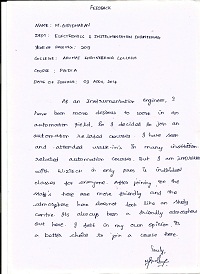 FEEDBACK
NAME : M.
DEPT : ELECTRONICS & INSTRUMENTATION ENGINEERING
YEAR OF PASSING : 2013
COLLEGE : ENGINEERING COLLEGE
COURSE : PG DIA
DATE OF JOINING :
As an Instrumentation engineer, I
have been more desires to work in an
automation field. So I decided to join an
automation related courses. I have seen
and attended in many institution
related automation course. But I am
with is only pass is individual
classes for everyone. After joining
staff's here are more friendly and the
atmosphere here doesnot feel like an study
centre its always been a friendly atmosphere
out here. I feel in my own opinion its
a better choice to join a course here.